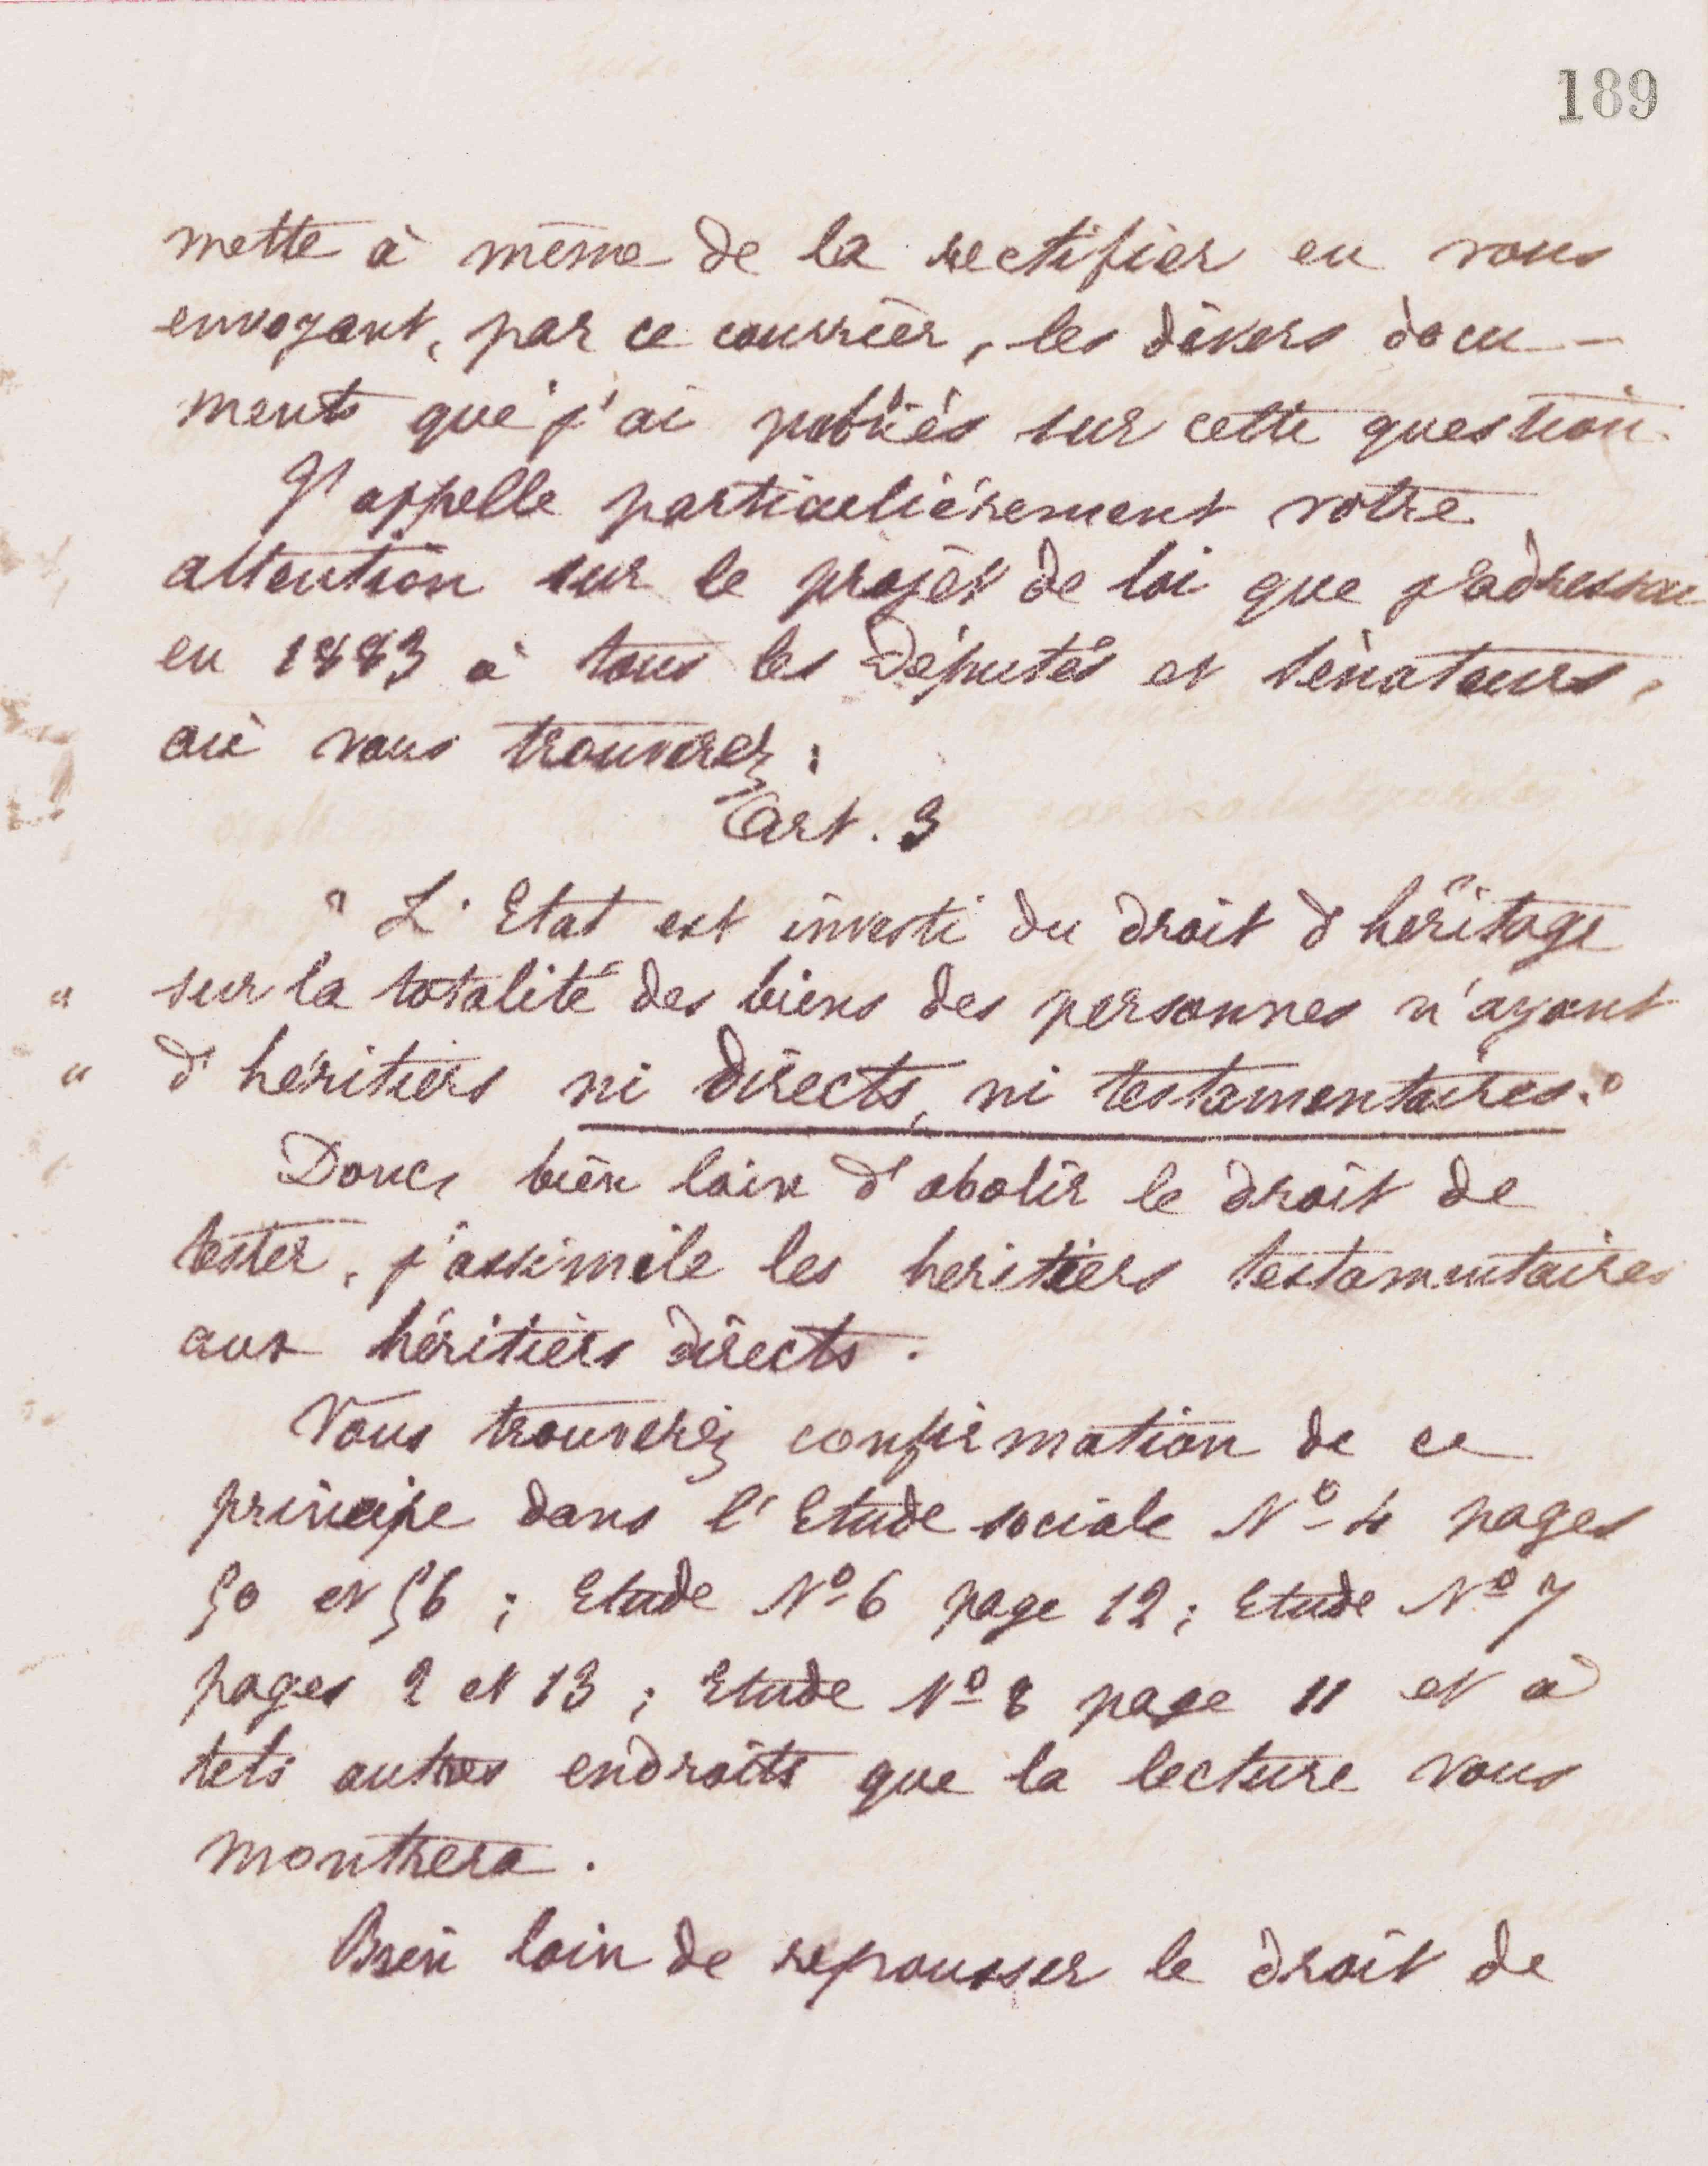 189
mette à même de la rectifier en vous
envoyant, par ce courrier, les divers docu-
ments que j'ai publiés sur cette question.
J'appelle particulièrement votre
attention sur le projet de loi que j'adressai
en 1883 à tous les Députés et Sénateurs,
où vous trouverez :
Art. 3
" L'Etat est investi du droit d'héritage
" sur la totalité des biens des personnes n'ayant
" d'héritiers ni directs, ni testamentaires."
Donc, bien loin d'abolir le droit de
tester, j'assimile les heritiers testamentaires
aux héritiers directs.
Vous trouverez confirmation de ce
principe dans l'Etude sociale No 4 pages
50 et 56 ; Etude No 6 page 12 ; Etude No 7
pages 2 et 13 ; Etude No 8 page 11 et à
tels autres endroits que la lecture vous
montrera.
Bien loin de repousser le droit de